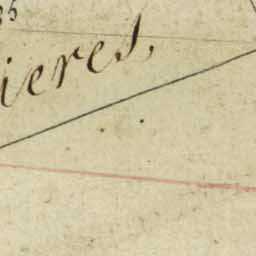 35
ieres,